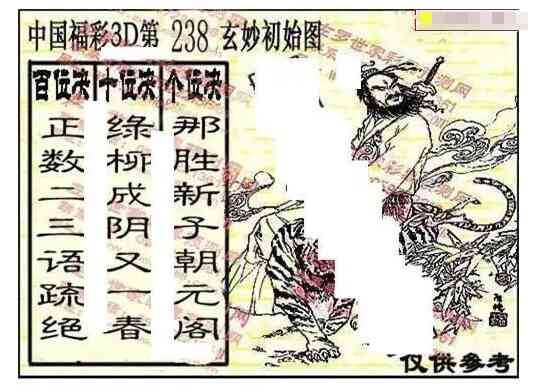 中国福彩3D第 238 玄妙初始图
百位决
正数二三语疏绝
十位决
绿柳成阴又一春
个位决
那胜新子朝元阁
仅供参考